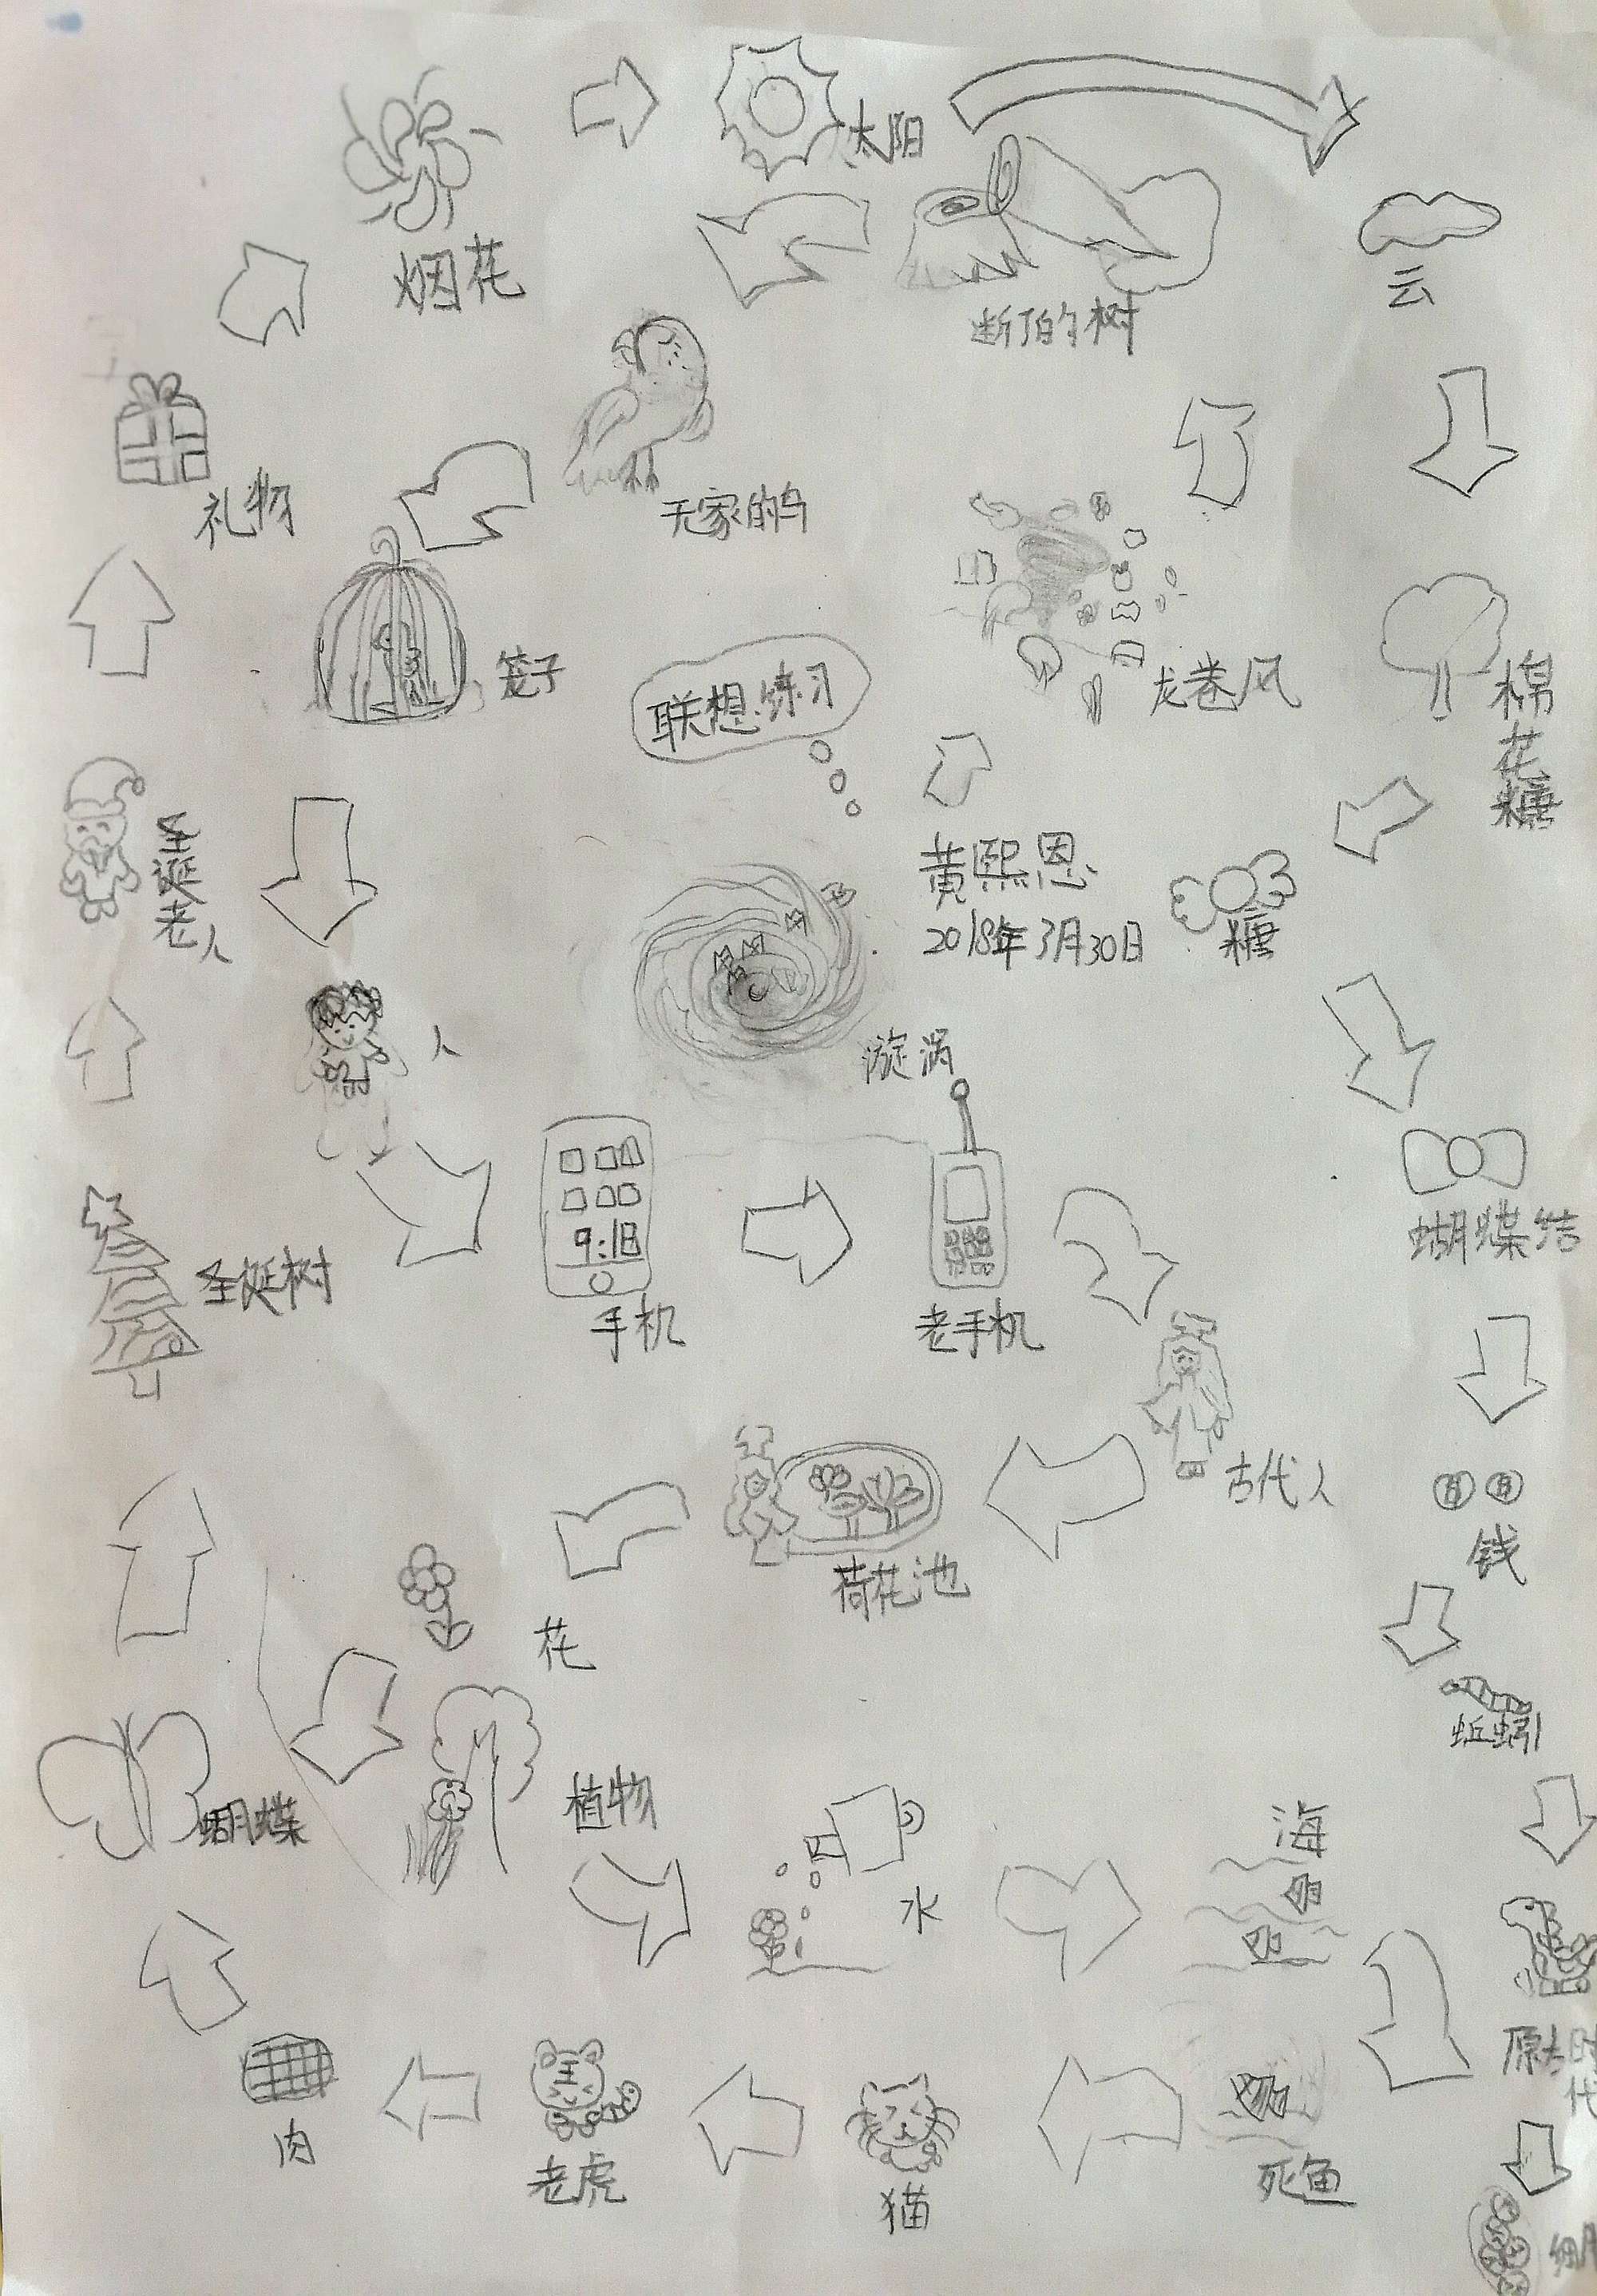 太阳
烟花
云
断了的树
礼物
无家的鸟
笼子
联想练习
龙卷风
棉花糖
圣诞老人
黄熙恩
2018年3月30日
糖
人
漩涡
9:18
手机
老手机
蝴蝶结
圣诞树
古代人
钱
荷花池
花
蚯蚓
植物
蝴蝶
水
海
原始时代
肉
老虎
王
猫
死鱼